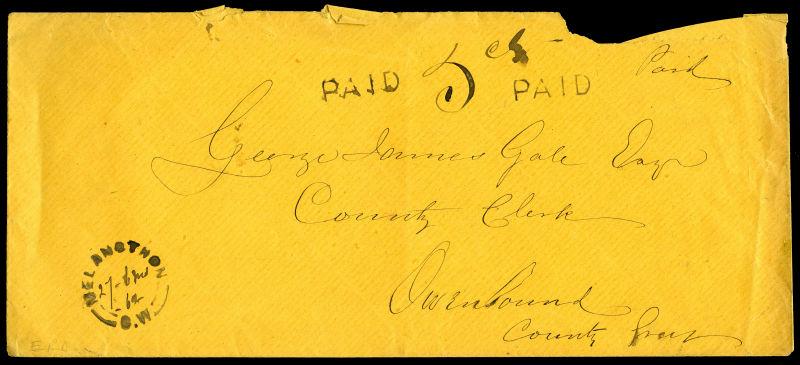 Paid
PAID 5 cts PAID
George James Gale Esqr
County Clerk
Owen Sound
County Grey
MELANCTHON
27
64
C.W.